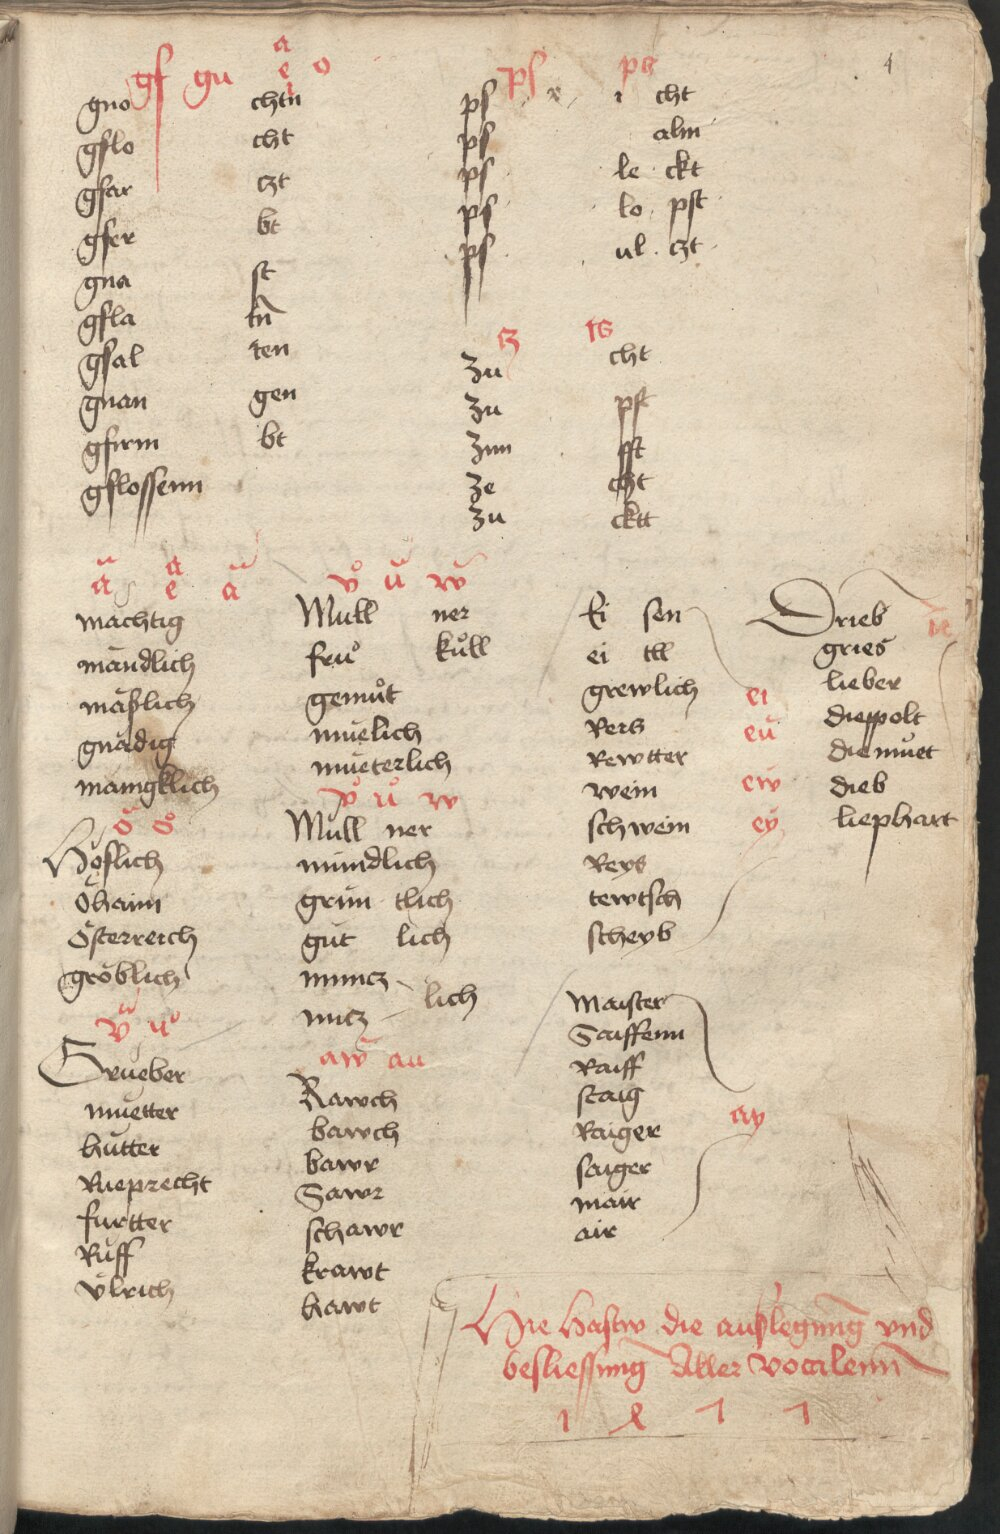 4
gf gn aͤ e o
gno chtn
gflo cht
gfar czt
gfer bt
gna st
gfla tn̄
gfal ten
gnan gen
gfirm bt
gflossenn
ps ps
ps i cht
ps alm
ps le ckt
ps lo pst
ps ul czt
cz ts
zu cht
zu pft
zun fft
ze cht
zu cktt
ä aͤ ä
mächtig
mändlich
mäßlich
gnädig
mämgklich
ö oͤ
Höflich
öhaim
österreich
gröblich
v̈ uͦ
Grueber
muetter
hütter
Rueprecht
furtter
Rüff
v̈lrich
vͦ ü ẅ
Mull ner
fruͦ kuͦll
gemuͦt
müelich
müeterlich
vͦ uͦ w
Müll ner
mündlich
grün tlich
güt lich
müncz lich
nucz
aw̄ au
Rawch
bawch
bawr
Sawr
schawr
krawt
hawt
Ei sen
ei tll
grewlich
Rers
Rewtter
wein
schwein
Reys
tewtsch
scheyb
ei
eü
eẅ
eÿ
Maister
Saiffenn
Raiff
staig
Raiger
saiger
mair
air
ay
Drieb
gries
lieber
dieppolt
diemuet
dieb
liephart
ie
Hie hastw die außlegung vnd
besliessung Aller vocalenn
1 ꝭ 7 7